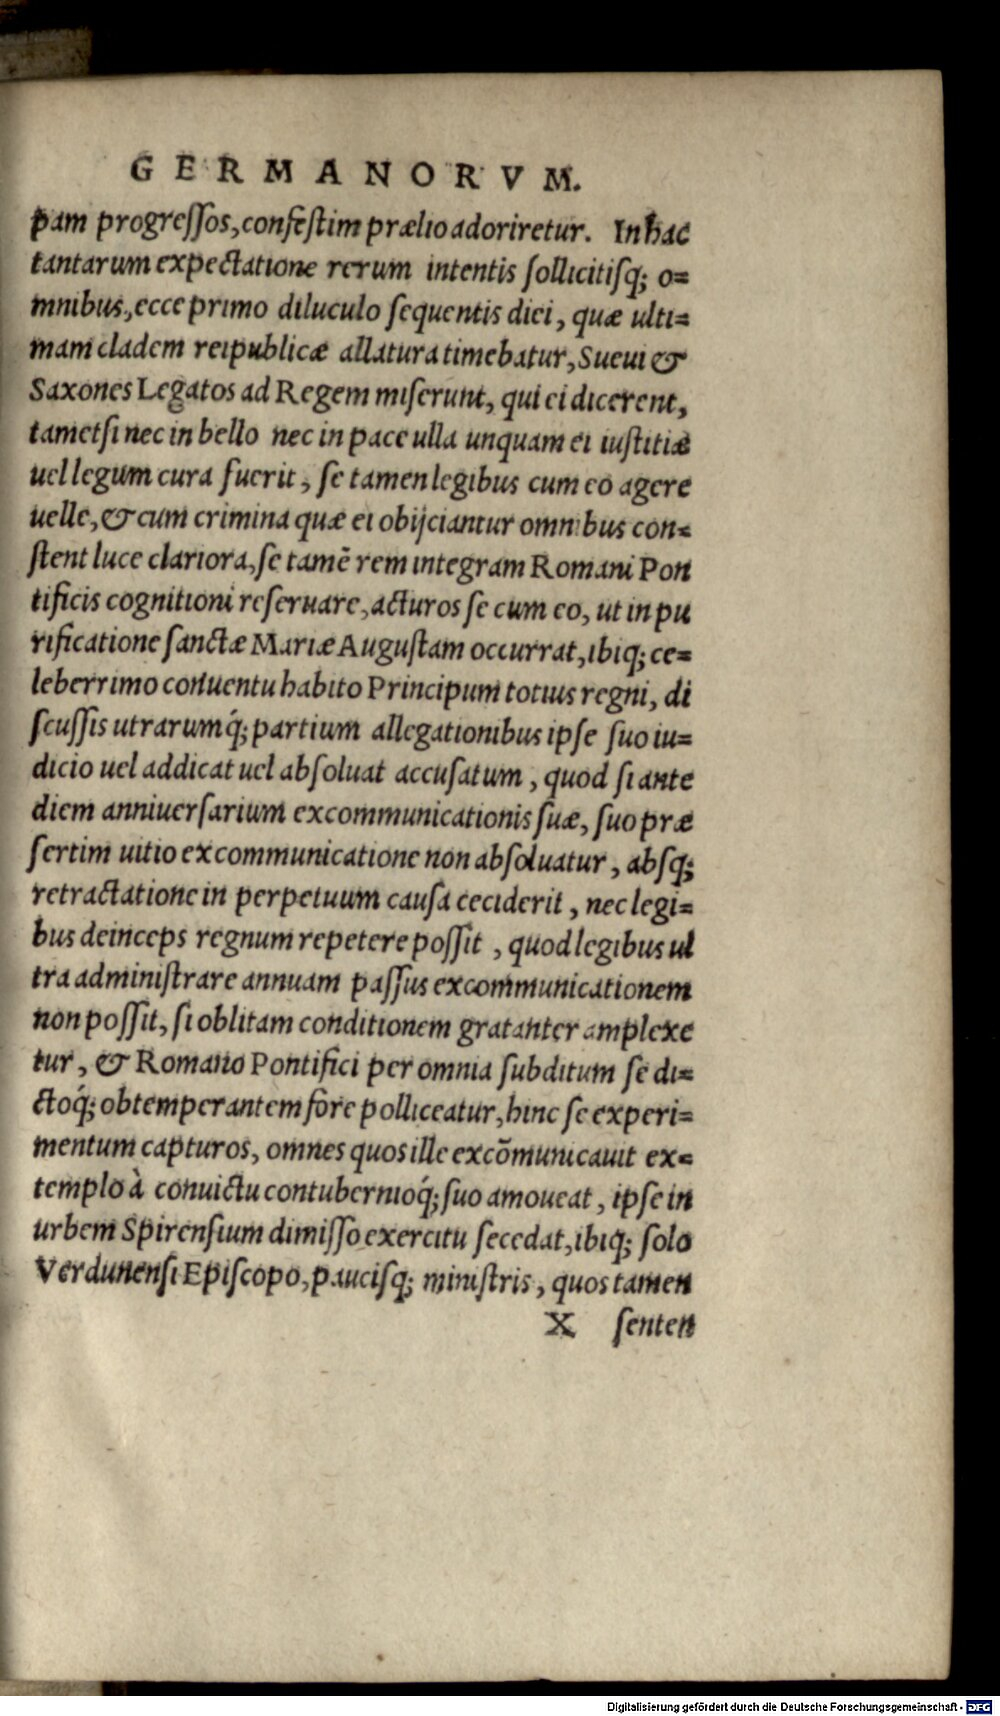 GERMANORVM.
pam progreſſos, confeſtim prælio adoriretur. In hac
tantarum expectatione rerum intentis ſollicitiſq; o=
mnibus, ecce primo diluculo ſequentis diei, quæ ulti=
mam cladem reipublicæ allatura timebatur, Sueui &
Saxones Legatos ad Regem miſerunt, qui ei dicerent,
tametſi nec in bello nec in pace ulla unquam ei iuſtitiæ
uel legum cura fuerit, ſe tamen legibus cum eo agere
uelle, & cum crimina quæ ei obijciantur omnibus con=
ſtent luce clariora, ſe tamē rem integram Romani Pon
tificis cognitioni reſeruare, acturos ſe cum eo, ut in pu
rificatione ſanctæ Mariæ Auguſtam occurrat, ibiq; ce=
leberrimo conuentu habito Principum totius regni, di
ſcuſſis utrarumq́; partium allegationibus ipſe ſuo iu=
dicio uel addicat uel abſoluat accuſatum, quod ſi ante
diem anniuerſarium excommunicationis ſuæ, ſuo præ
ſertim uitio excommunicatione non abſoluatur, abſq;
retractatione in perpetuum cauſa ceciderit, nec legi=
bus deinceps regnum repetere poſſit, quod legibus ul
tra adminiſtrare annuam paſſus excommunicationem
non poſſit, ſi oblitam conditionem gratanter amplexe
tur, & Romano Pontifici per omnia ſubditum ſe di=
ctoq́; obtemperantem fore polliceatur, hinc ſe experi=
mentum capturos, omnes quos ille excōmunicauit ex=
templo à conuictu contubernioq́; ſuo amoueat, ipſe in
urbem Spirenſium dimiſſo exercitu ſecedat, ibiq; ſolo
Verdunenſi Epiſcopo, pauciſq; miniſtris, quos tamen
X ſenten
Digitalisierung gefördert durch die Deutsche Forschungsgemeinschaft - DFG